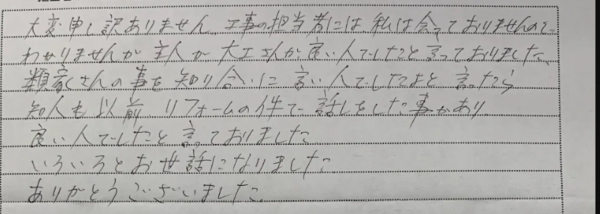 大変申し訳ありません 工事の担当者には私は会っておりませんので
わかりませんが主人が大工さんが良い人でしたと言っておりました。
さんの事を知り合いに言い人でしたよと言ったら
知人も以前 リフォームの件で話しをした事があり
良い人でしたと言っておりました
いろいろとお世話になりました
ありがとうございました。